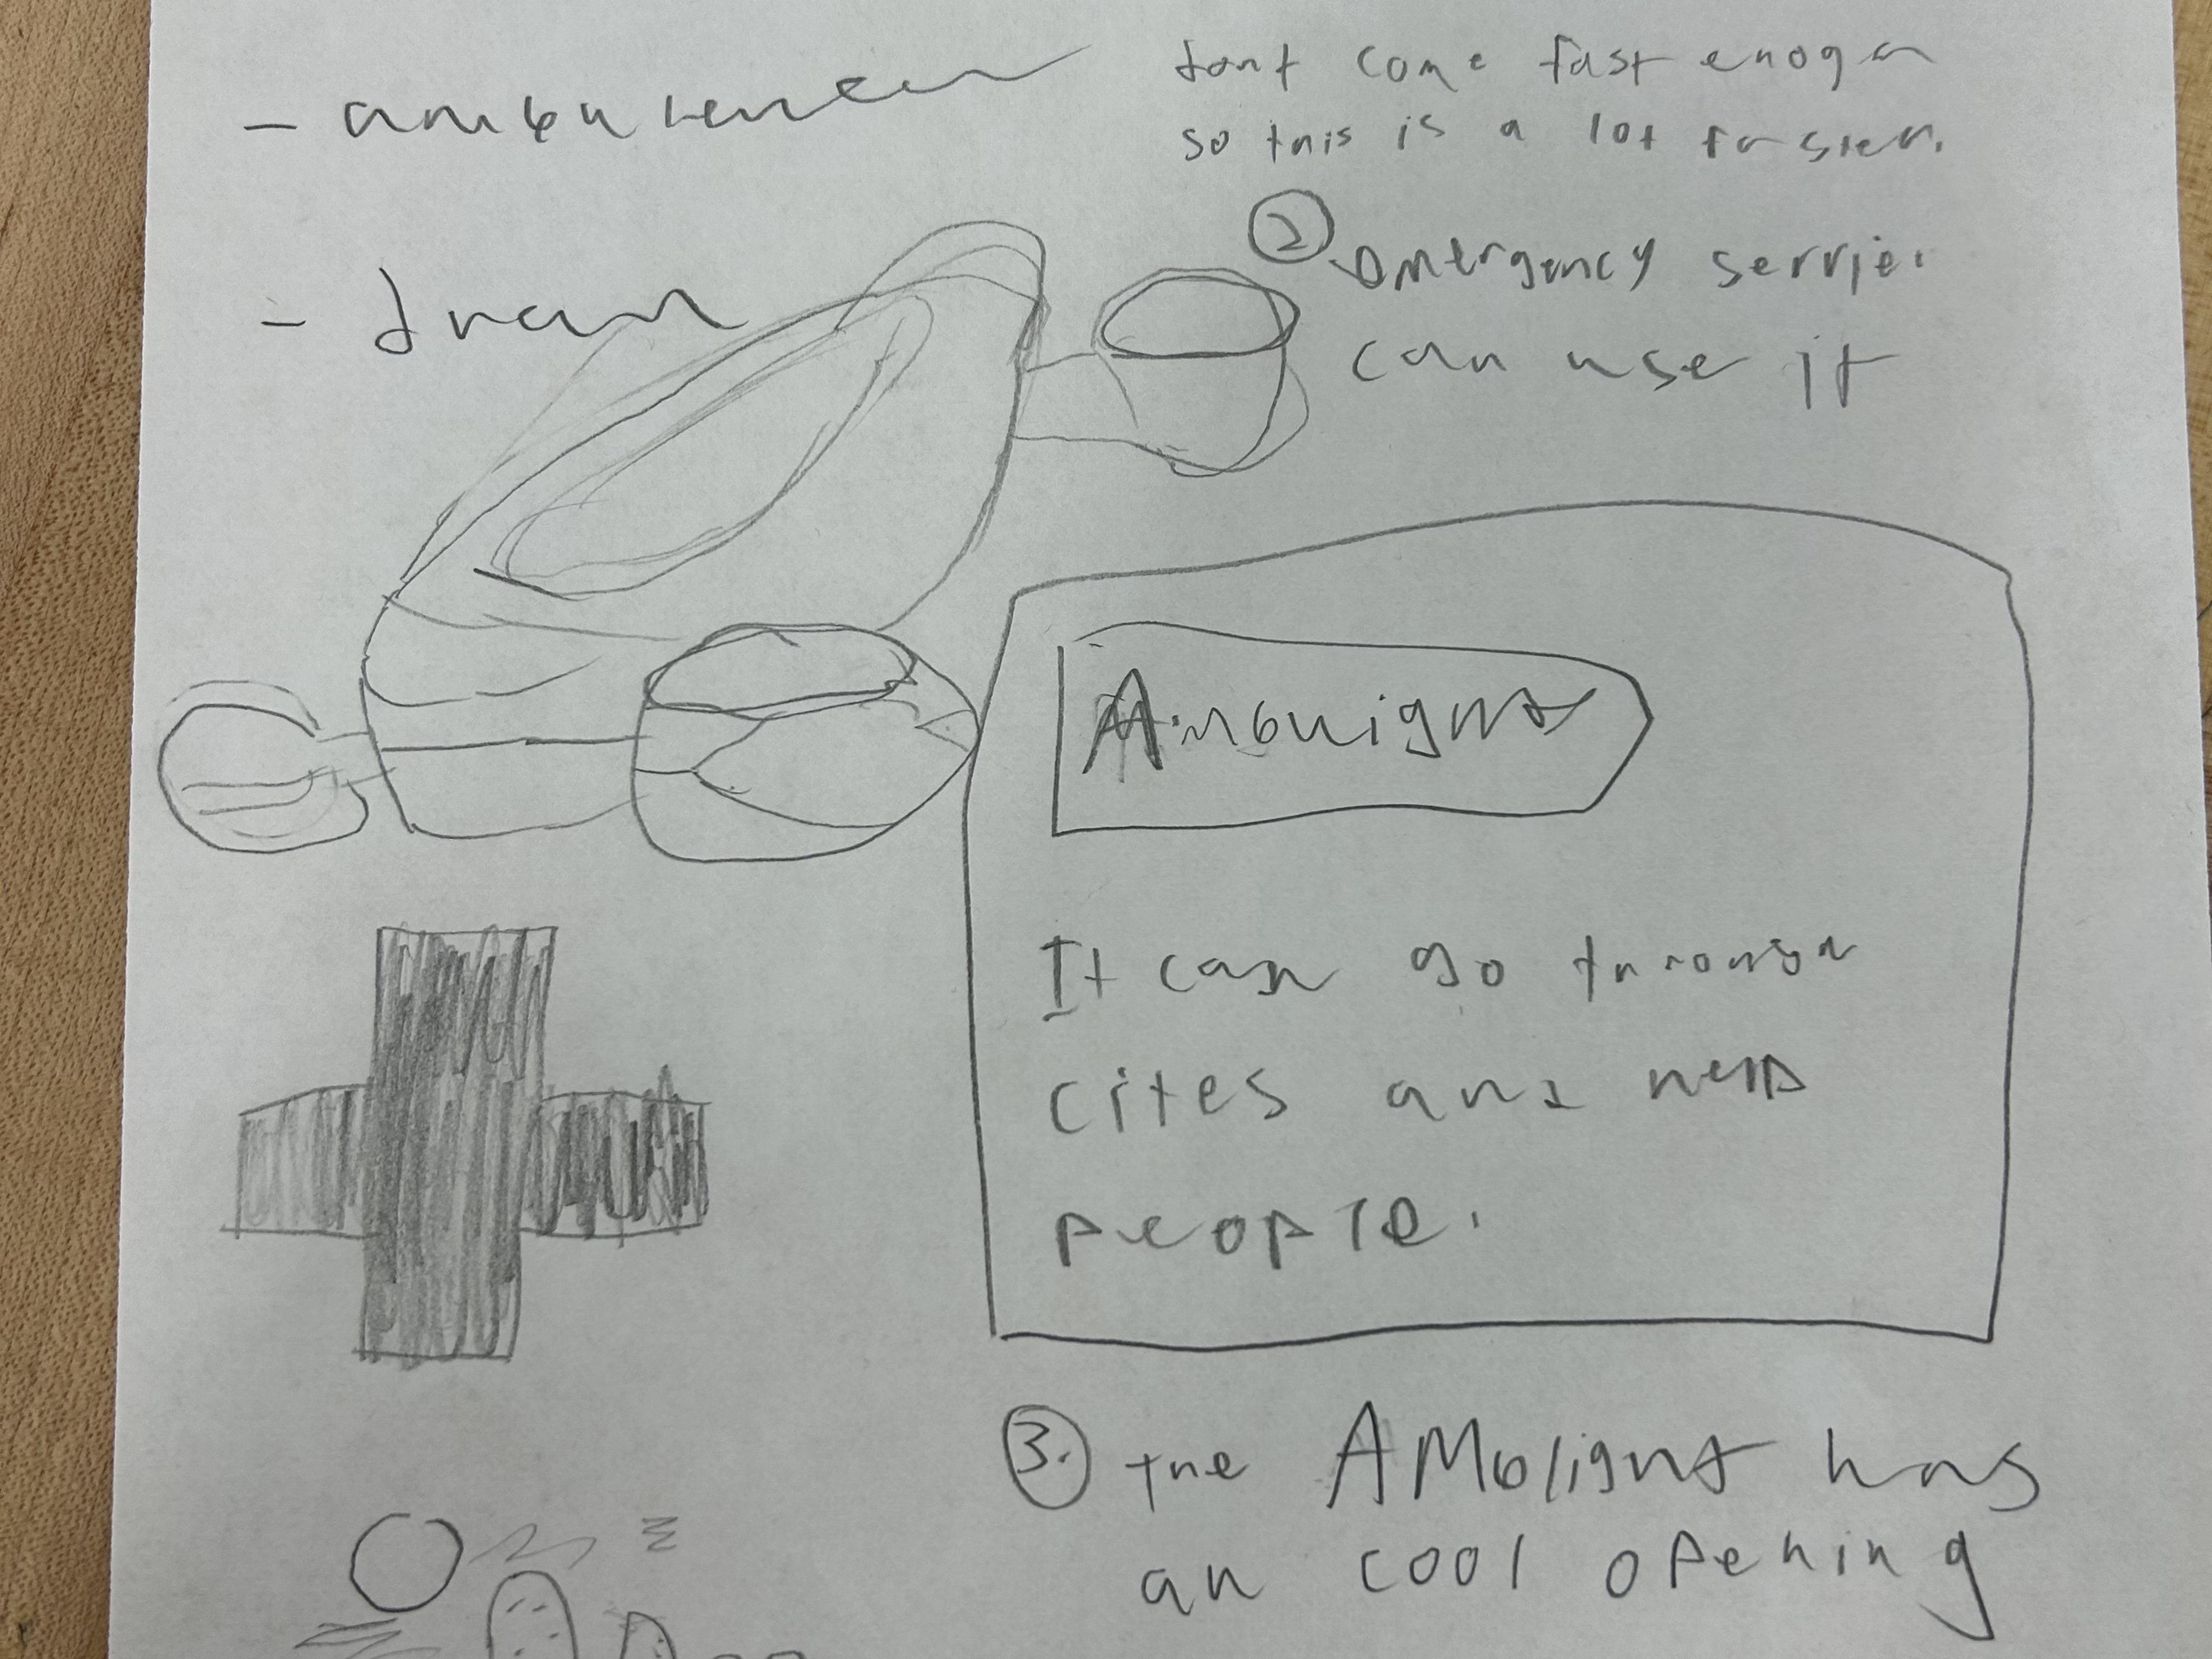 - ambulences
dont come fast enogh
so this is a lot fasster.
- dron
② emergency servies
can use it
Ambulight
It can go through
cites and help
people.
③. the AMblight has
an cool opening